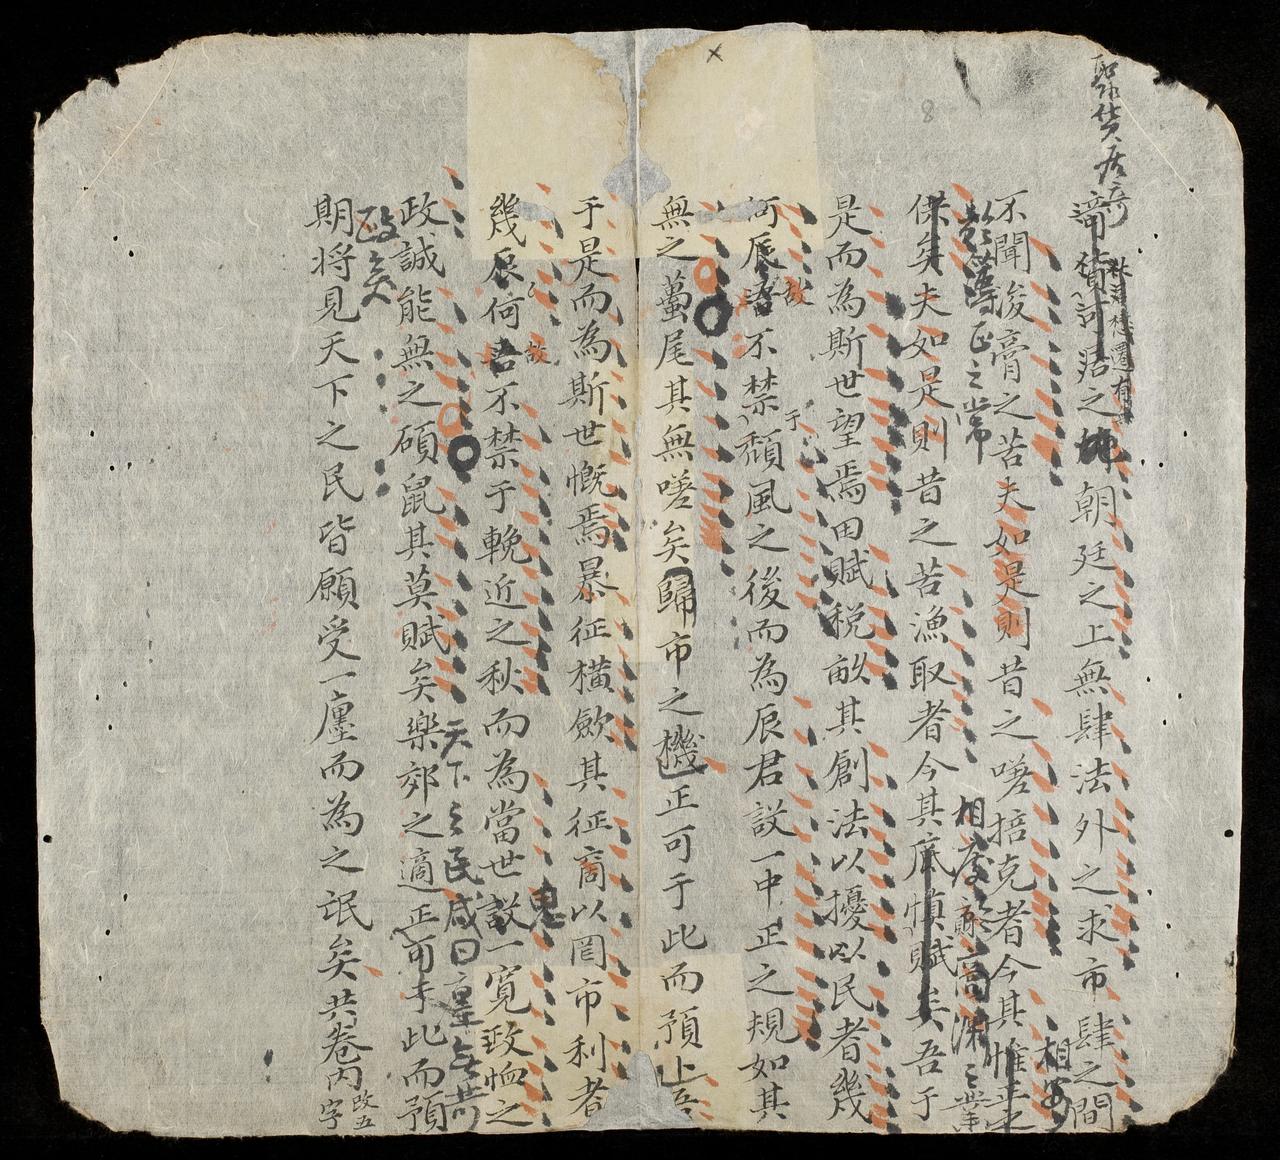 聚貨居奇
啼積訶居之地朝廷之上無肆法外之求市肆之間
相安
不聞浚膏之苦夫如是則昔之嗟掊克者今其惟正之
薄正之常
相度於高深之業
供矣夫如是則昔之苦漁取者今其底慎賦矣吾于
是而為斯世望焉田賦税畝其創法以擾以民者幾
何辰吾不禁頹風之後而為辰君設一中正之規如其
故
于
無之蠆尾其無嗟矣歸市之機正可于此而預卜吾
于是而為斯世慨焉暴征橫歛其征商以罔市利者
幾辰何吾不禁于輓近之秋而為當世設一寬政恤之
故
政誠能無之碩鼠其莫賦矣樂郊之適正可于此而預
天下之民咸曰
政矣
期将見天下之民皆願受一廛而為之氓矣共卷内改五字
8